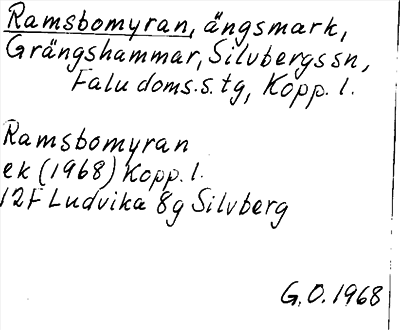 Ramsbomyran, ängsmark,
Grängshammar, Silvbergs sn,
Falu doms.s. tg, Kopp. l.
Ramsbomyran
ek (1968) Kopp. l.
12F Ludvika 8g Silvberg
G.O. 1968